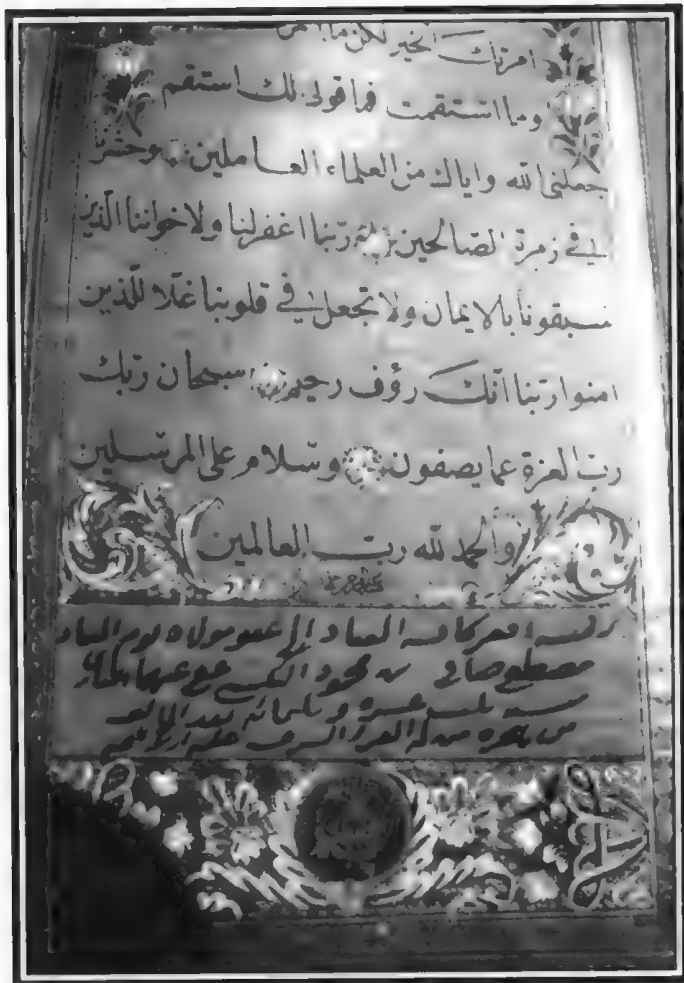 امرتك الخير لكن ما
وما استقمت فما قولى لك استقم
جعلنى الله واياك من العلماء العاملين وحشر
فى زمرة الصالحين ربنا اغفرلنا ولاخواننا الذين
سبقونا بالايمان ولا تجعل فى قلوبنا غلا للذين
امنوا ربنا انك رؤف رحيم سبحان ربك
رب العزة عما يصفون وسلام على المرسلين
والحمد لله رب العالمين
العباد الى عفو مولاه يوم
مصطفى صافى بن محمود عفى عنهما
سنة ثلث عشرة وثلثمائة بعد الالف
من هجرة من له العز والشرف